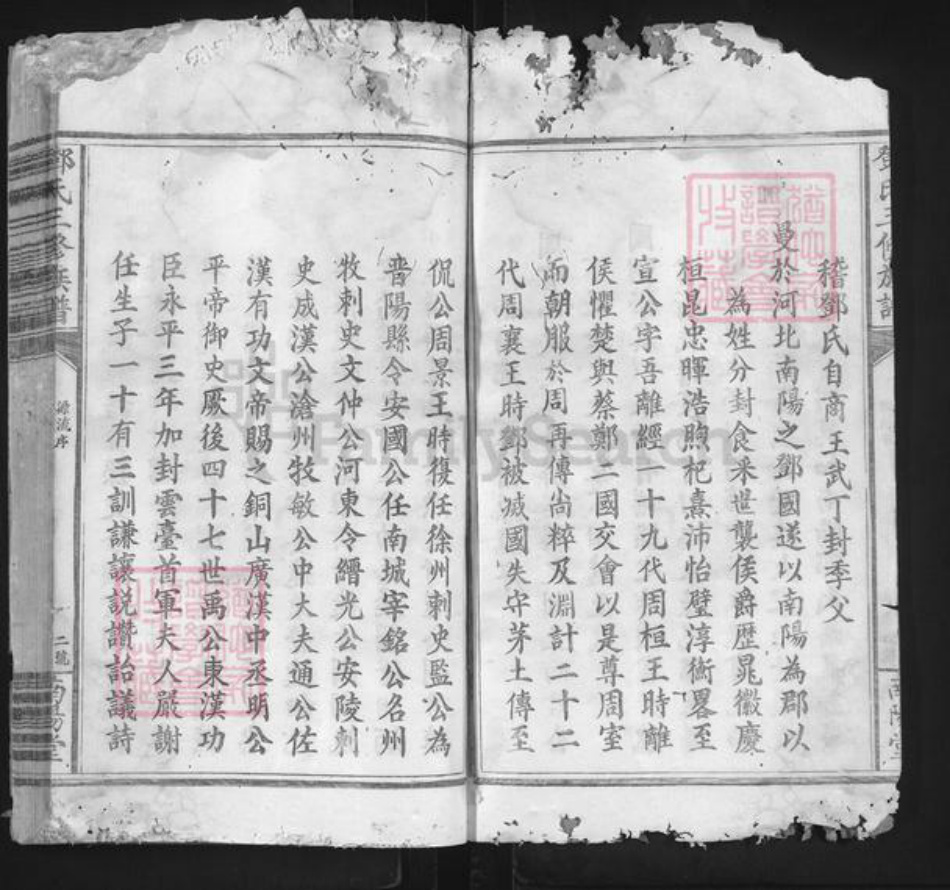 稽鄧氏自商王武丁封季父
曼於河北南陽之鄧國遂以南陽為郡以
為姓分封食采世襲侯爵歷晁徽慶
桓昆忠暉浩煦杞熹沛怡璧淳衛畧至
宣公字吾離經一十九代周桓王時離
侯懼楚與蔡鄭二國交會以是尊周室
而朝服於周再傳尙粹及淵計二十二
代周襄王時鄧被滅國失守茅土傳至
侃公周景王時復任徐州刺史監公為
晋陽縣令安國公任南城宰銘公名州
牧刺史文仲公河東令縉光公安陵刺
史成漢公滄州牧敏公中大夫通公佐
漢有功文帝賜之銅山廣漢中丞明公
平帝御史厥後四十七世禹公東漢功
臣永平三年加封雲臺首軍夫人嚴謝
任生子一十有三訓謙讓說讚詒議詩
鄧氏三修族譜
源流序
二號
南陽堂
FamilySearch